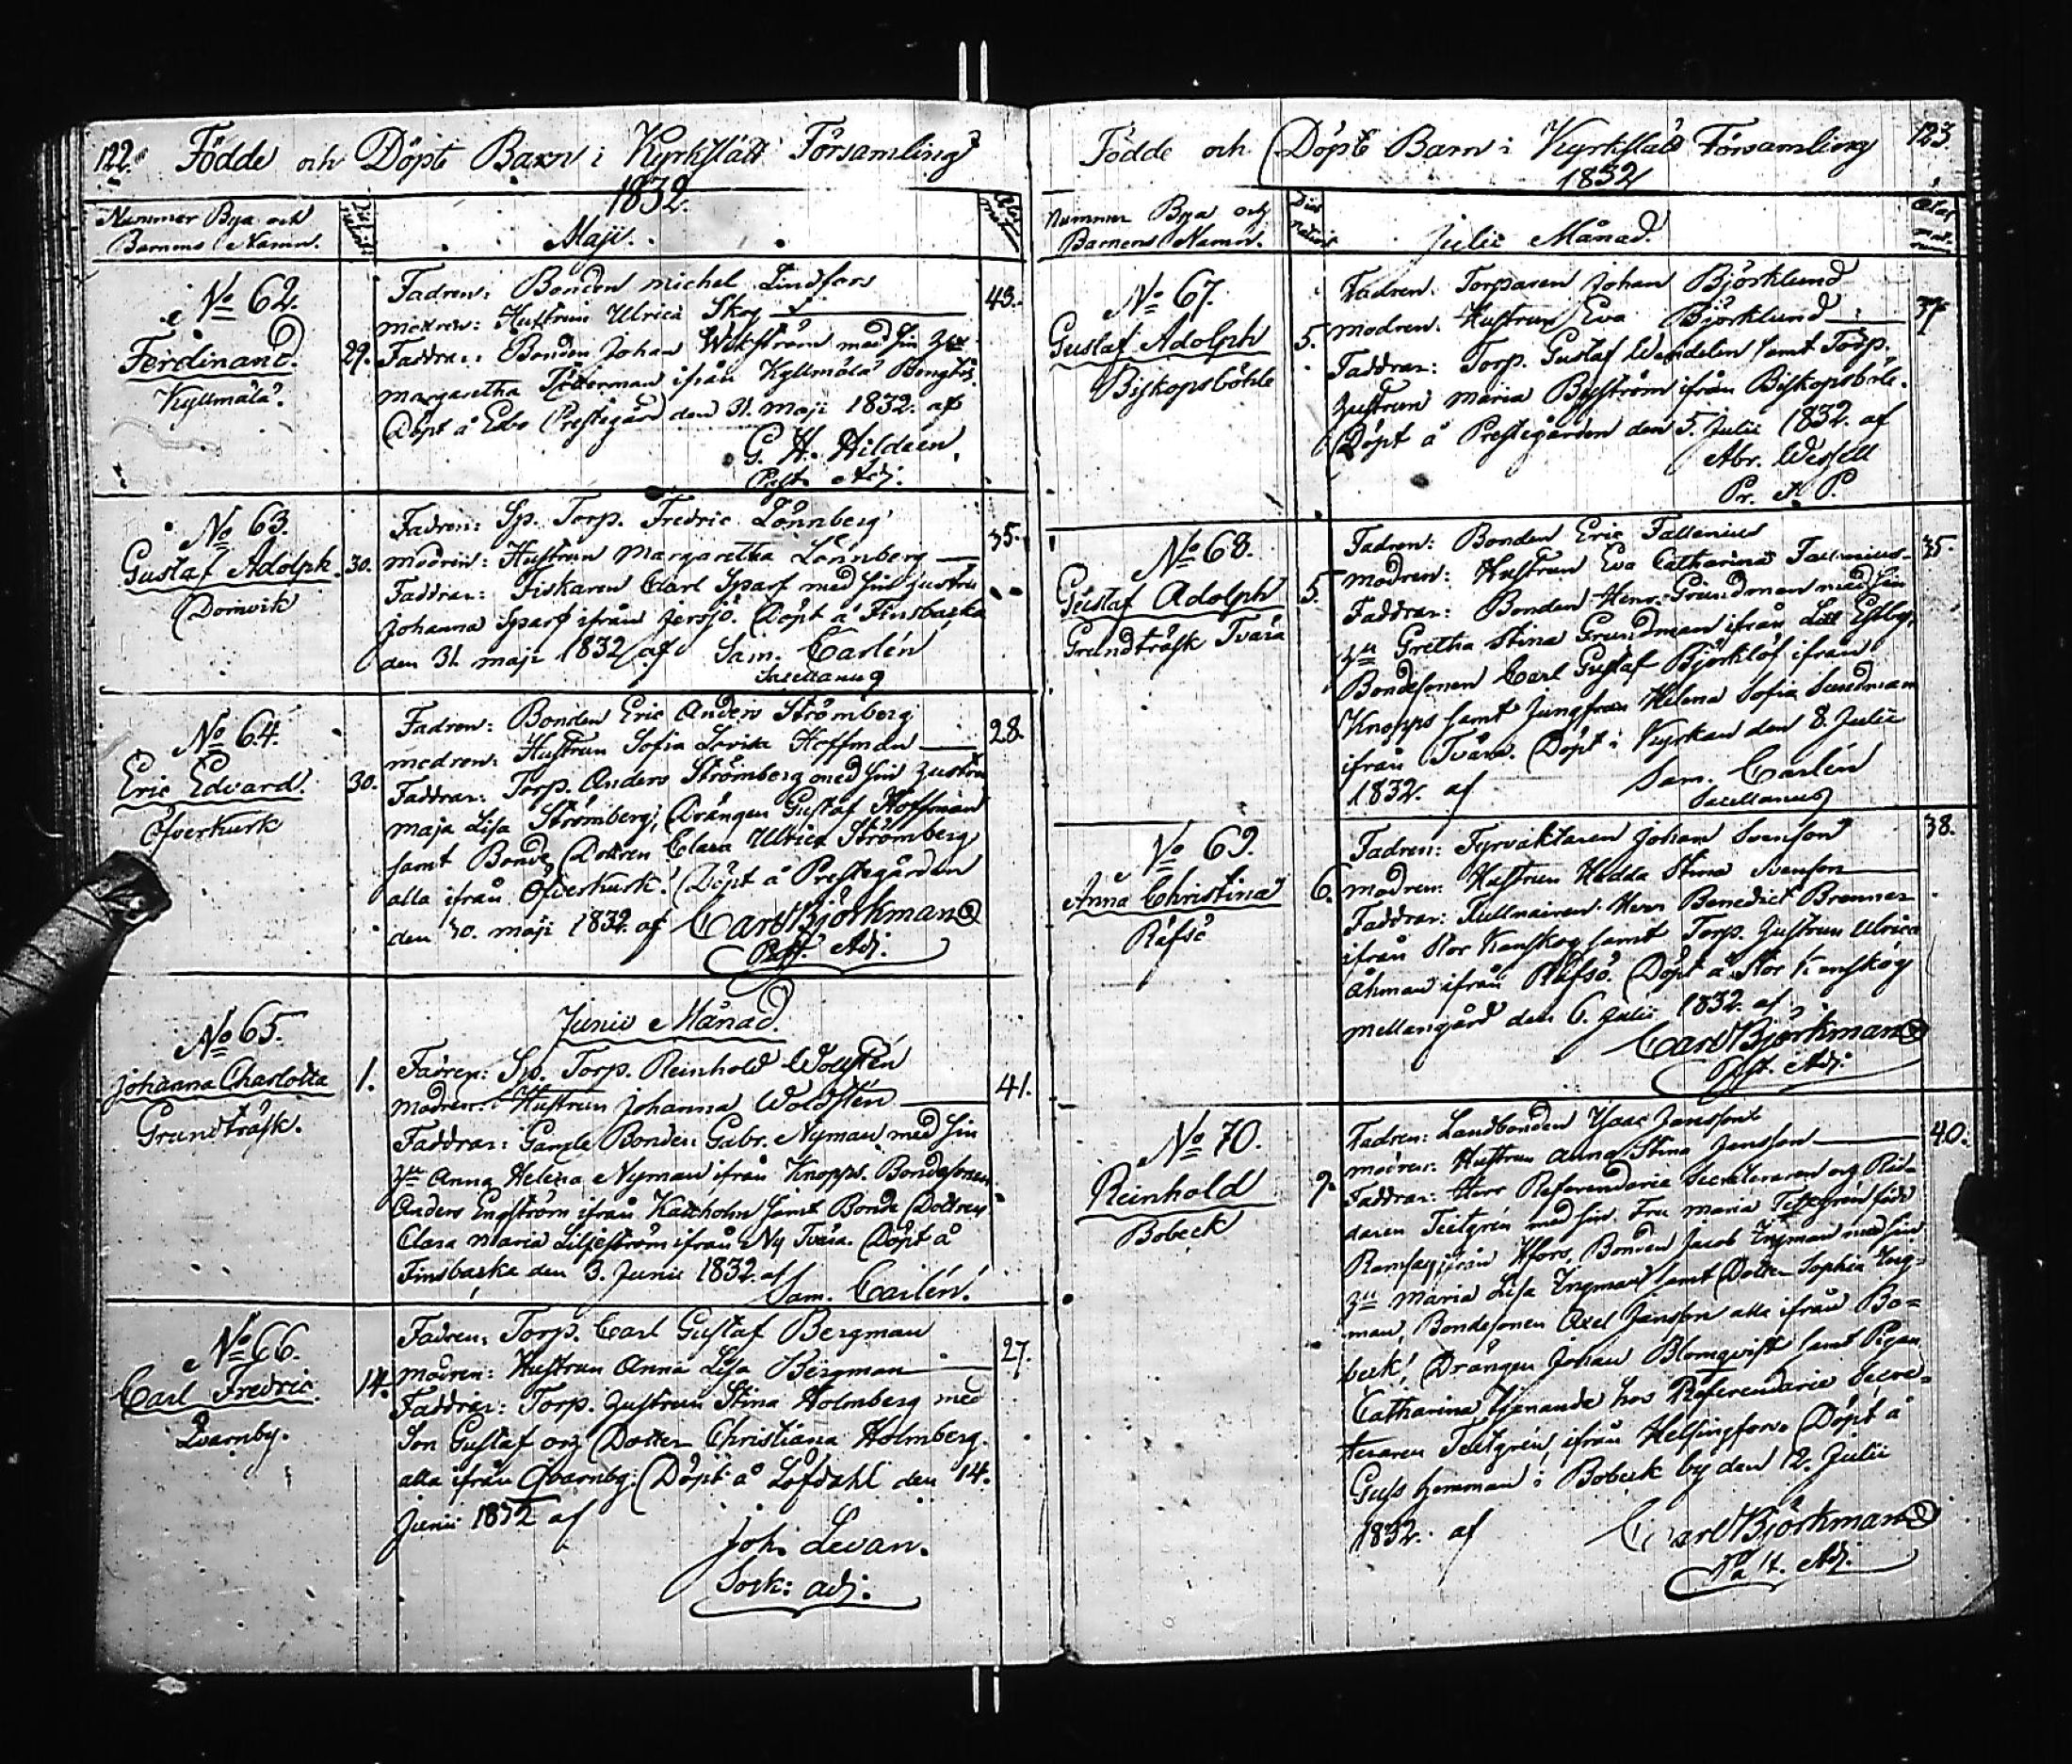 122. Födde och Döpte Barn i Kyrkslätt Församling
1832.
Nummer Bya och
Barnens Namn.
Maji.
No 62.
Ferdinand.
Kyllmälä.
29.
Fadren: Bonden Michel Lindfors
Modren: Hustrun Ulrica Skog
43.
Faddrar: Bonden Johan Wikström med sin
Margaretha ifrån Kyllmälä Bengts.
Döpt å Esbo Prestegård den 31. Maji 1832. af
G. H. Hildeen.
Past. Adj.
No 63.
Gustaf Adolph.
Domvik
30.
Fadren: Sp. Torp. Fredric Lönnberg
Modren: Hustrun Margaretha Lönnberg
35.
Faddrar: Fiskaren Carl Sparf med sin Hustru
Johanna Sparf ifrån Jersjö. Döpt å Finsbacka
den 31. Maji 1832 af Sam. Carlén
Sacellanus
No 64.
Eric Edvard.
Öfverkurk
30.
Fadren: Bonden Eric Anders Strömberg
Modren: Hustrun Sofia Lovisa Hoffman
28.
Faddrar: Torp. Anders Strömberg med sin Hustru
Maja Lisa Strömberg, Drängen Gustaf Hoffman
samt Bonde Dottren Clara Ulrica Strömberg
alla ifrån Öfverkurk. Döpt å Prestegården
den 30. Maji 1832. af Carl Björkman
Past. Adj.
Junii Månad.
No 65.
Johanna Charlotta
Grundträsk.
1.
Fadren: Sp. Torp. Reinhold Woldstén
Modren: Hustrun Johanna Woldstén
41.
Faddrar: Gamle Bonden Gabr. Nyman med sin
Hu Anna Helena Nyman ifrån Knopps. Bondesonen
Anders Engström ifrån samt Bonde Dottren
Clara Maria Liljeström ifrån Ny Tvära. Döpt å
Finsbacka den 3. Junii 1832. af
Sam. Carlén.
No 66.
Carl Fredric.
Qvarnby.
14.
Fadren: Torp. Carl Gustaf Bergman
Modren: Hustrun Anna Lisa Bergman
27.
Faddrar: Torp. Hustrun Stina Holmberg med
Son Gustaf och Dotter Christiana Holmberg
alla ifrån Qvarnby. Döpt å Löfdahl den 14.
Junii 1832 af
Joh. Levan.
Sock: adj.
Födde och Döpte Barn i Kyrkslätt Församling 123.
1832
Nummer Bya och
Barnens Namn.
Julii Månad.
No 67.
Gustaf Adolph
Biskopsböhle
5.
Fadren: Torparen Johan Björklund
Modren: Hustrun Eva Björklund
37
Faddrar: Torp. Gustaf Wendelin samt Torp.
Hustrun Maria Byström ifrån Biskopsböle.
Döpt å Prestegården den 5. Julii 1832. af
Abr. Wessell
Pr. P.
No 68.
Gustaf Adolph
Grundträsk Tvära
5.
Fadren: Bonden Eric Fallenius
Modren: Hustrun Eva Catharina Fallenius
35.
Faddrar: Bonden Henr. Grundman med sin
Hu Gretha Stina Grundman ifrån
Bondesonen Carl Gustaf Björklöf ifrån
Knopps samt Jungfrun Helena Sofia Sundman
ifrån Tvära. Döpt i Kyrkan den 8. Julii
1832. af Sam. Carlén
Sacellanus
No 69.
Anna Christina
Räfsö
6.
Fadren: Fyrvaktaren Johan Svenson
Modren: Hustrun Hedda Stina Svenson
38.
Faddrar: Tullnairen Herr Benedict Brenner
ifrån Stor Kanskog samt Torp. Hustrun Ulrica
Åhman ifrån Räfsö. Döpt å Stor Kanskog
Mellangård den 6. Julii 1832. af
Carl Björkman
Past. Adj.
No 70.
Reinhold
Bobeck
9.
Fadren: Landbonden Isaac Jansson
Modren: Hustrun Anna Stina Jansson
40.
Faddrar: Herr Referendarie Secreteraren och Rid-
daren Teetgrén med sin Fru Maria Teetgrén född
Ramsay ifrån Hfors, Bonden Jacob Ingman med sin
Hu Maria Lisa Ingman samt Dotter Sophia Ing-
man, Bondesonen Axel Jansson alla ifrån Bo=
beck, Drängen Johan Blomqvist samt Pigan
Catharina tjenande hos Referendarie Secre-
teraren Teetgrén, ifrån Helsingfors. Döpt å
Guss hemman i Bobeck by den 12. Julii
1832. af Carl Björkman
Past. Adj.